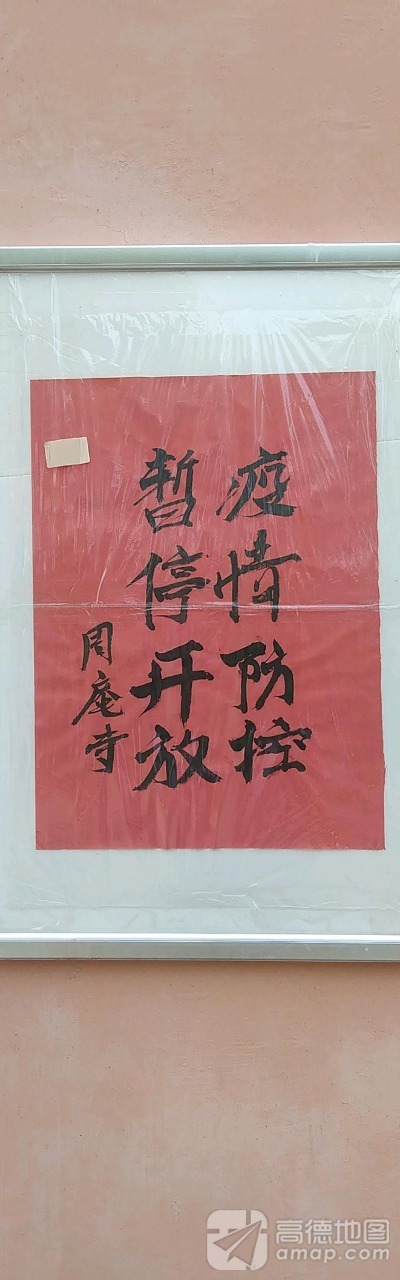 疫情防控
暂停开放
周庵寺
高德地图
amap.com